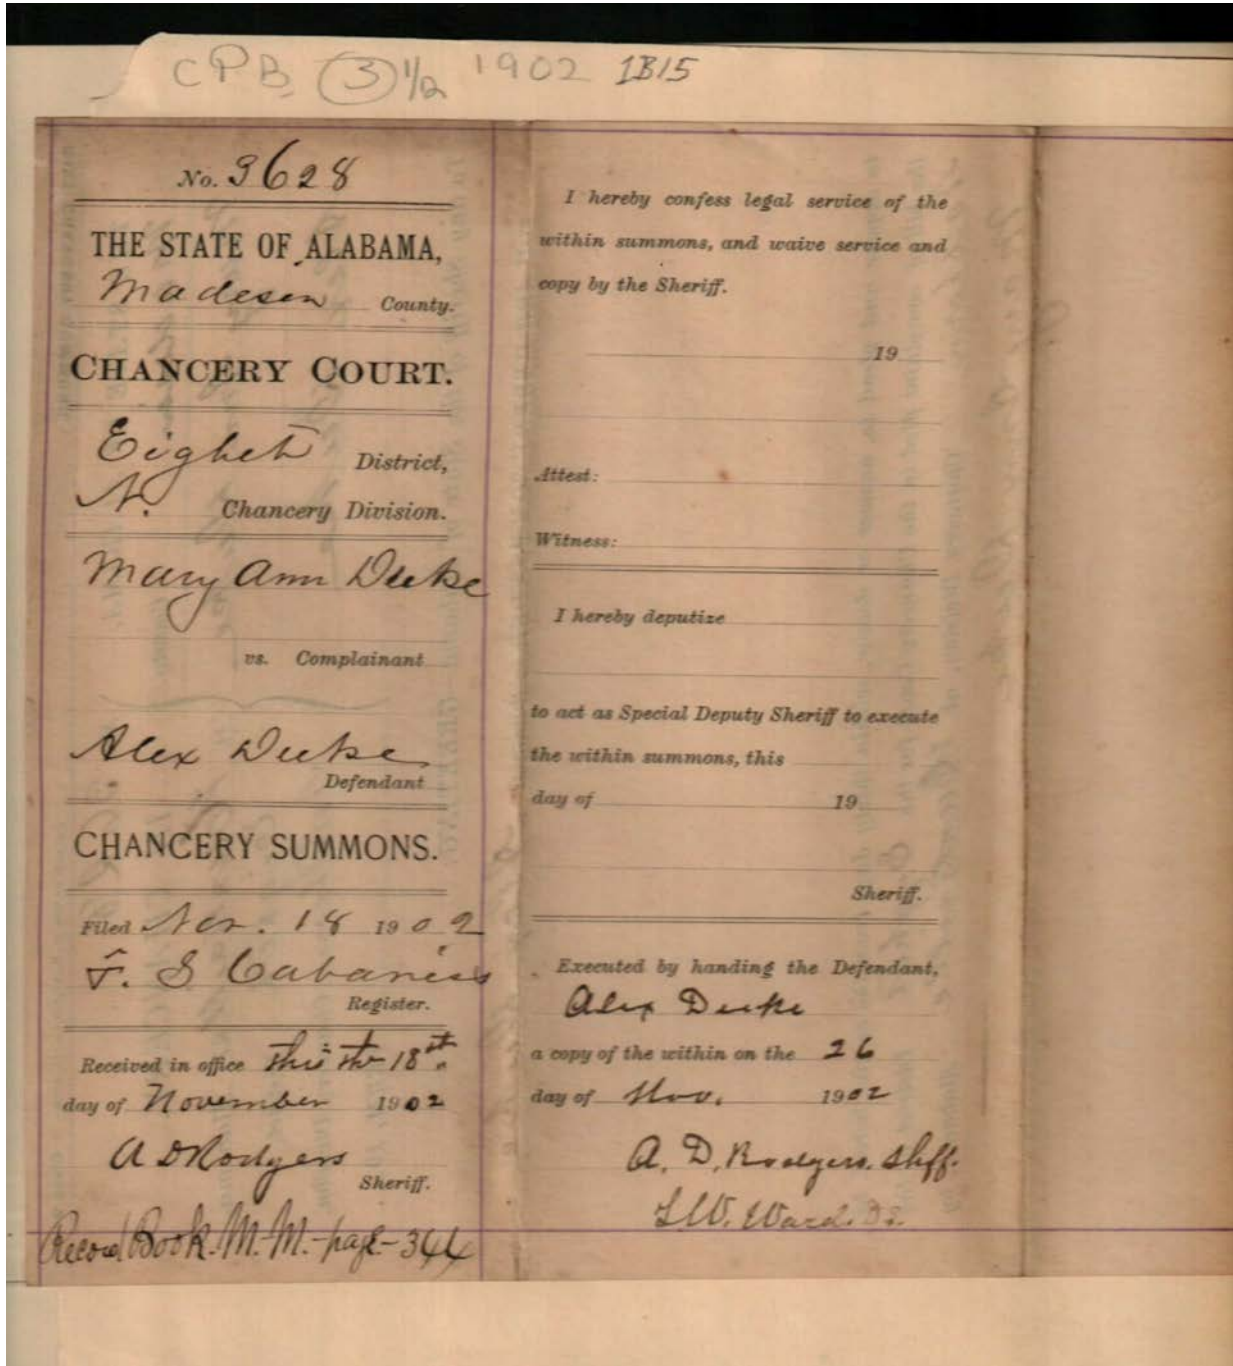 CPB 3 1/2 1902 1B15
No. 3628
THE STATE OF ALABAMA,
Madison County.
CHANCERY COURT.
Eighth District,
N. Chancery Division.
Mary Ann Duke
vs. Complainant
Alex Duke
Defendant
CHANCERY SUMMONS.
Filed Nov. 18 1902
F. S Cabaniss
Register.
Received in office this the 18th
day of November 1902
A D Rodgers
Sheriff.
Record Book. M. M. - page - 344
I hereby confess legal service of the
within summons, and waive service and
copy by the Sheriff.
19
Attest:
Witness:
I hereby deputize
to act as Special Deputy Sheriff to execute
the within summons, this
day of 19
Sheriff.
Executed by handing the Defendant,
Alex Duke
a copy of the within on the 26
day of Nov. 1902
A. D. Rodgers. Shff.
L.W. Ward. D.S.